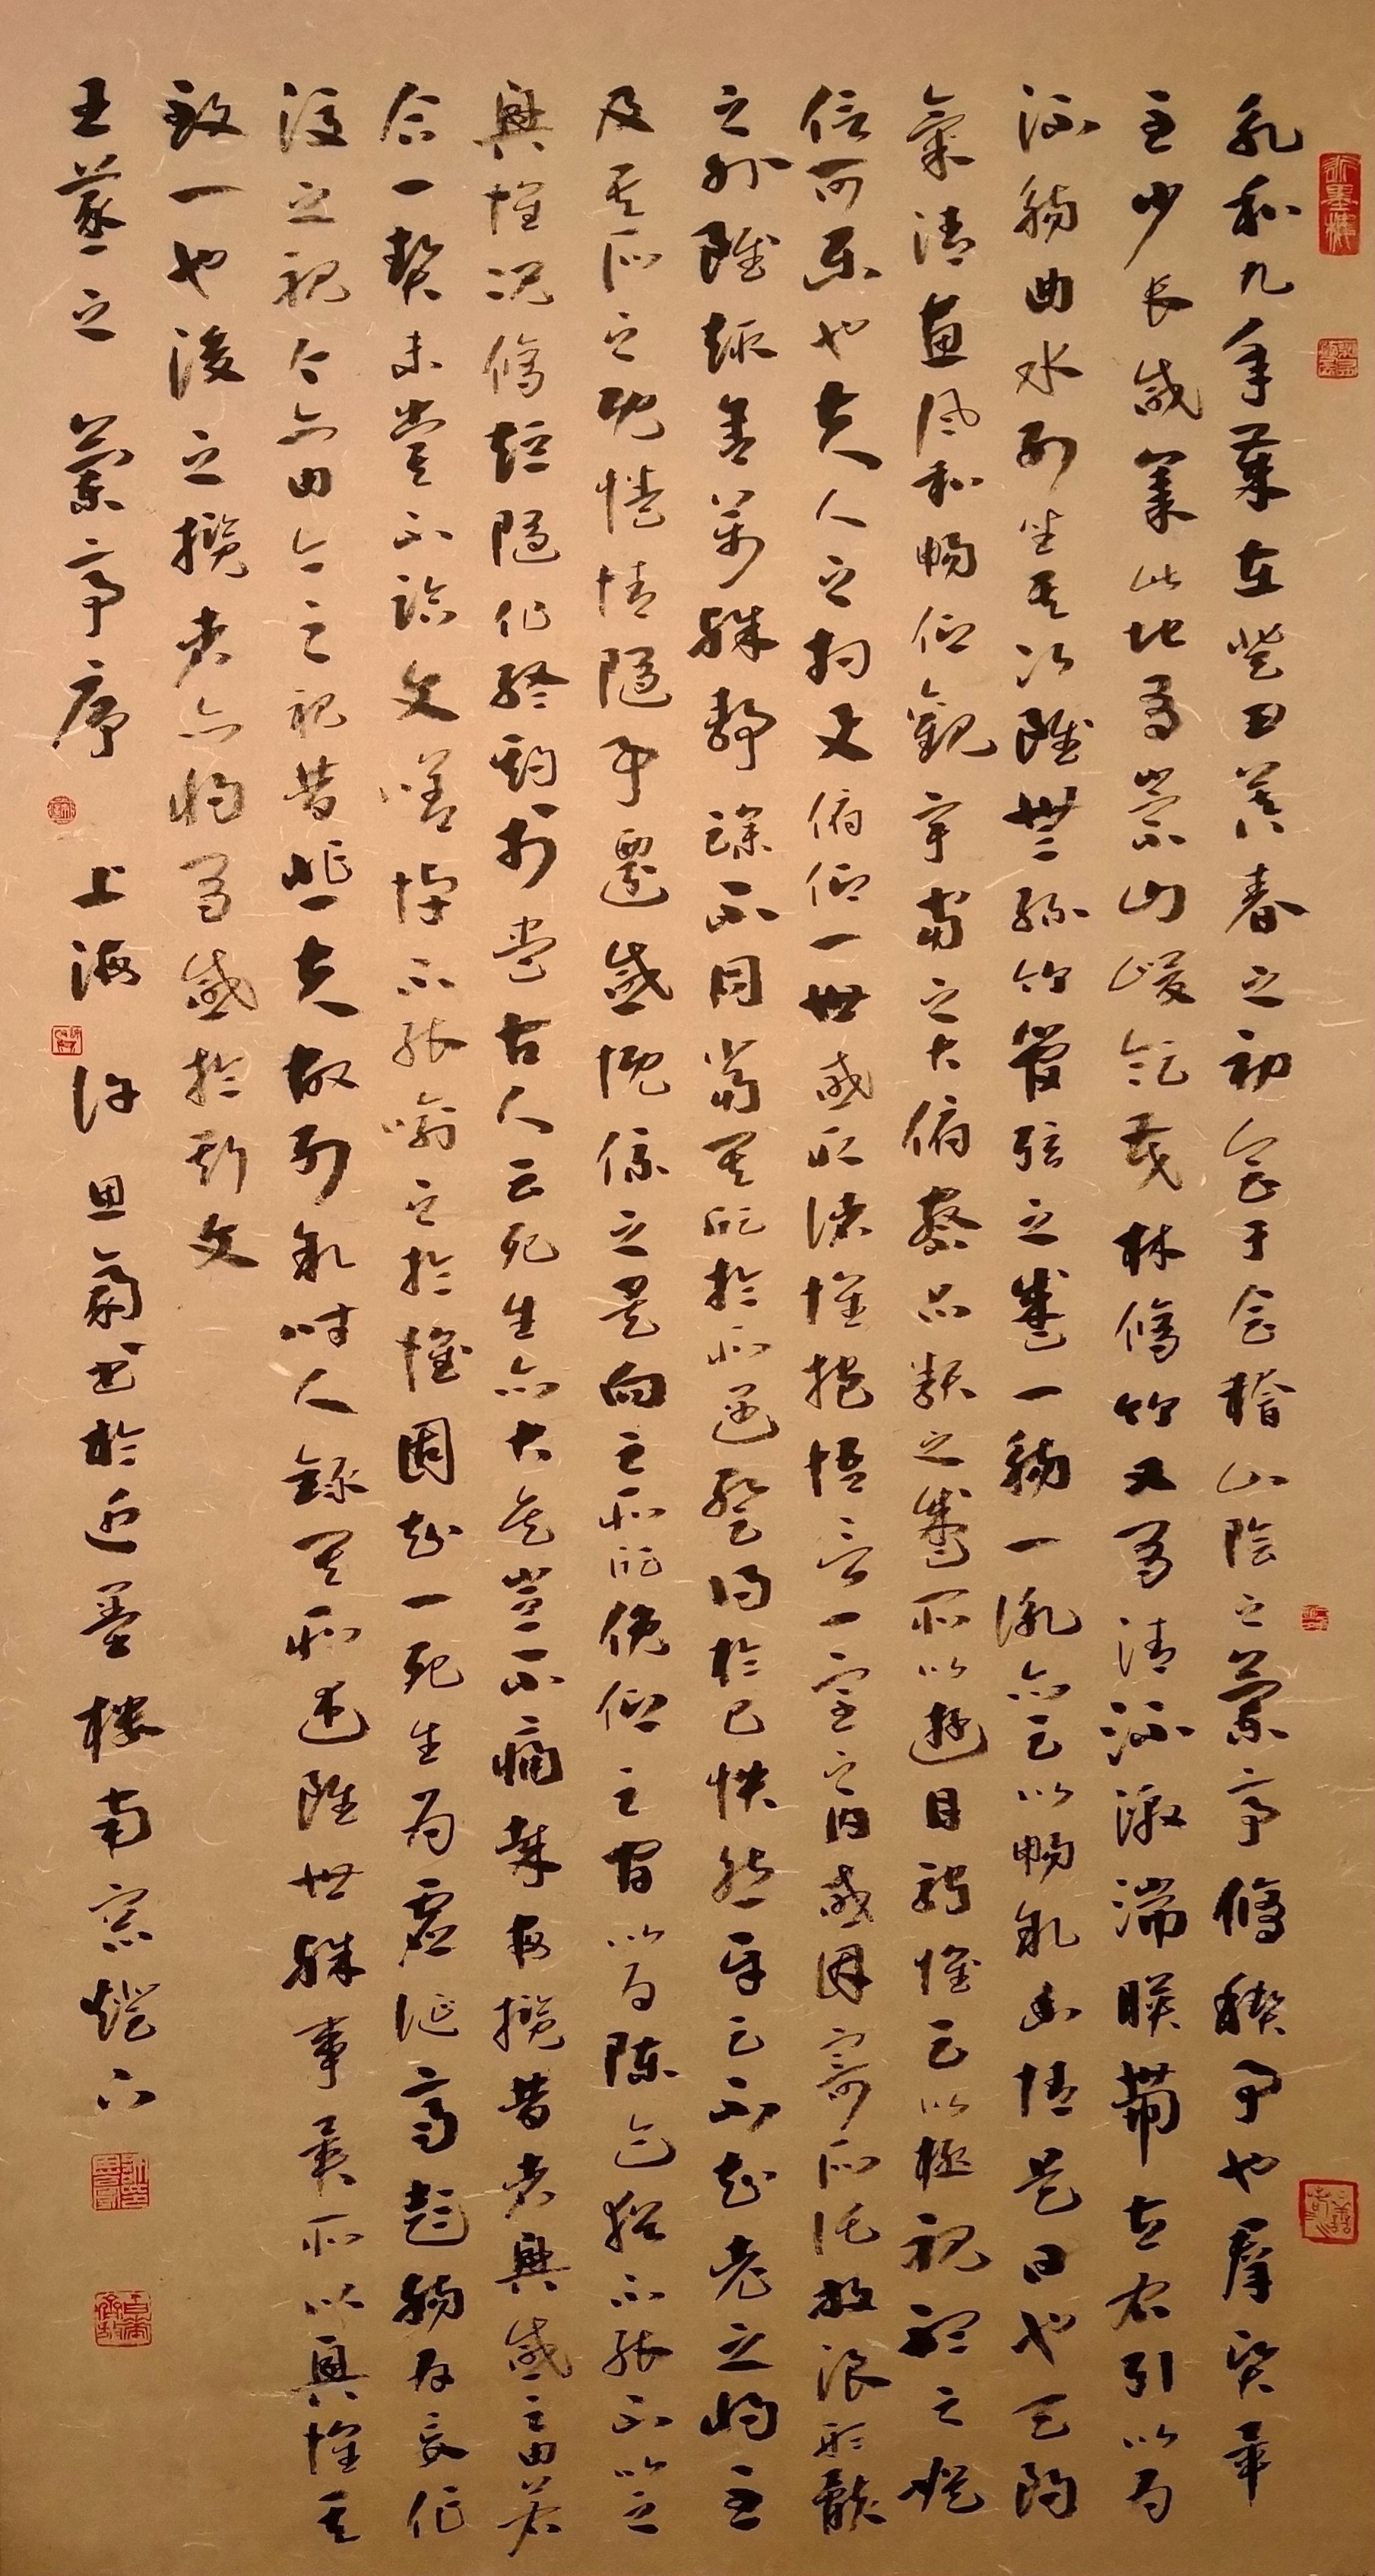 永和九年歲在癸丑暮春之初會于會稽山陰之蘭亭修稧事也群賢畢
至少長咸集此地有崇山峻領茂林修竹又有清流激湍暎帶左右引以為
流觴曲水列坐其次雖無絲竹管弦之盛一觴一詠亦足以暢敘幽情是日也天朗
氣清惠風和暢仰觀宇宙之大俯察品類之盛所以遊目騁懷足以極視聽之娛
信可樂也夫人之相與俯仰一世或取諸懷抱悟言一室之內或因寄所託放浪形骸
之外雖趣舍萬殊靜躁不同當其欣於所遇暫得於己快然自足不知老之將至
及其所之既惓情隨事遷感慨係之矣向之所欣俛仰之間以為陳迹猶不能不以之
興懷況修短隨化終期於盡古人云死生亦大矣豈不痛哉每攬昔者興感之由若
合一契未嘗不臨文嗟悼不能喻之於懷固知一死生為虛誕齊彭殤為妄作
後之視今亦由今之視昔悲夫故列敘時人錄其所述雖世殊事異所以興懷其
致一也後之攬者亦將有感於斯文
王羲之 蘭亭序 上海 許思豪書於近墨樓南窗燈下
近墨樓